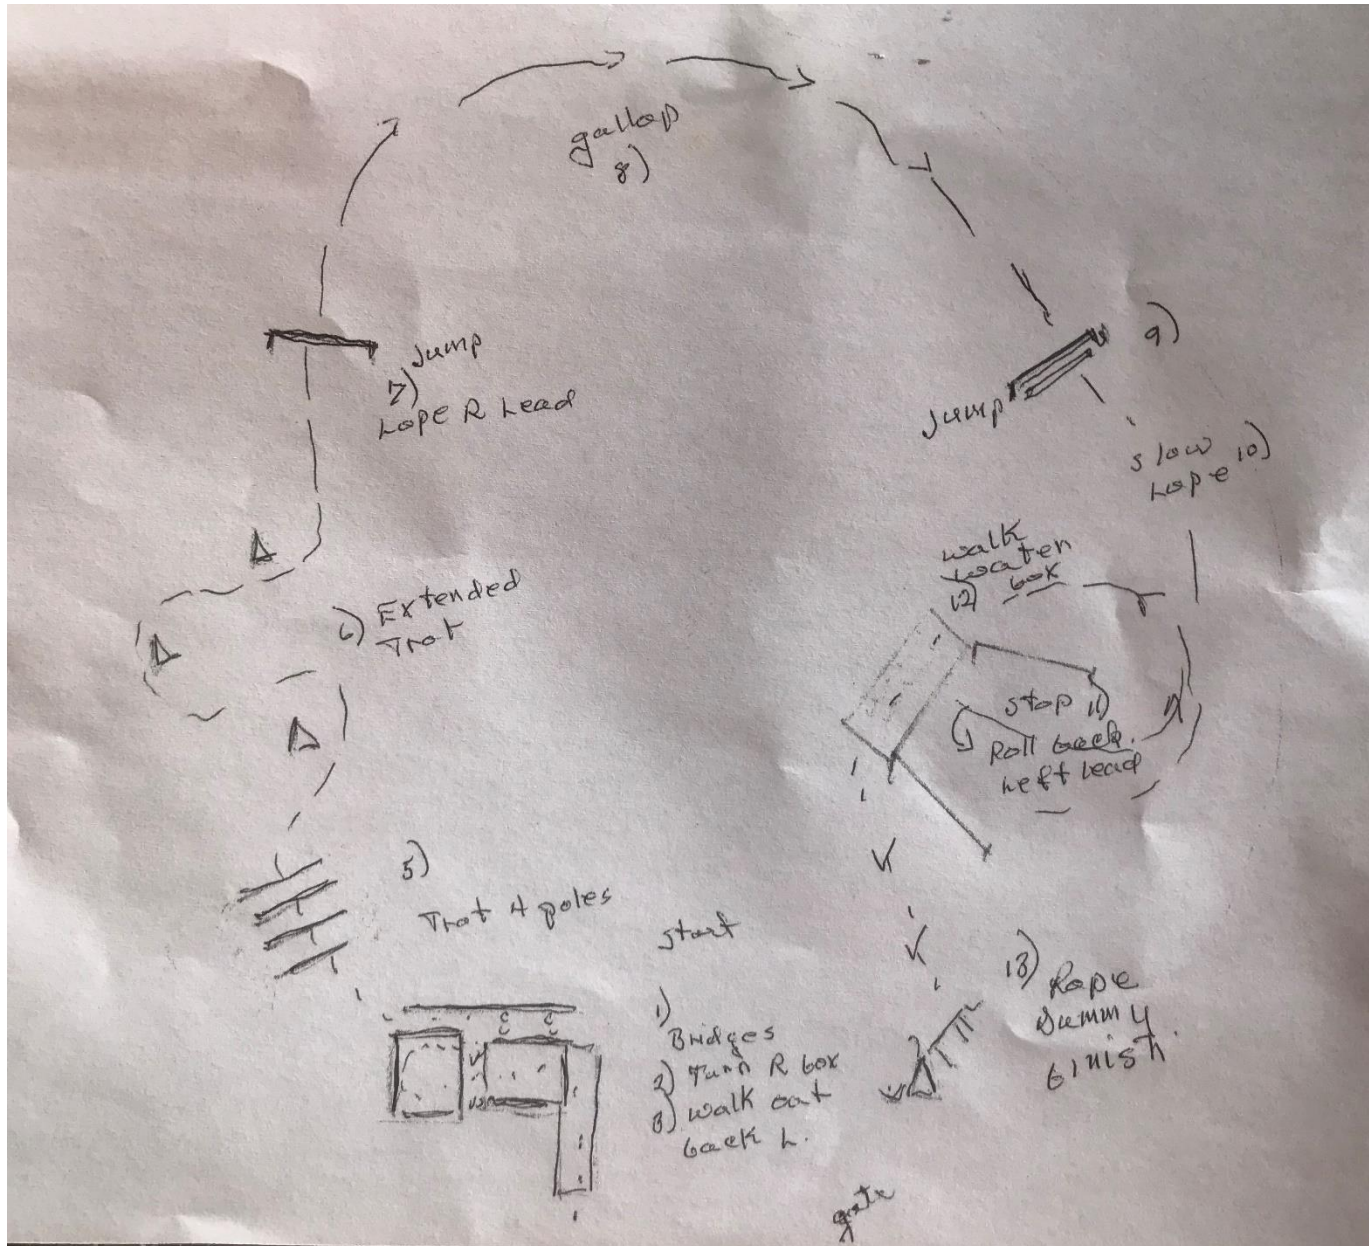 gallop
8)
Jump
7)
Lope R Lead
9)
Jump
slow 10)
Lope
6) Extended
Trot
walk
water
12) box
Stop 11)
Roll back.
Left Lead
5)
Trot 4 poles
start
1)
Bridges
2) Turn R box
3) walk out
back L.
13) Rope
Dummy
finish.
gate